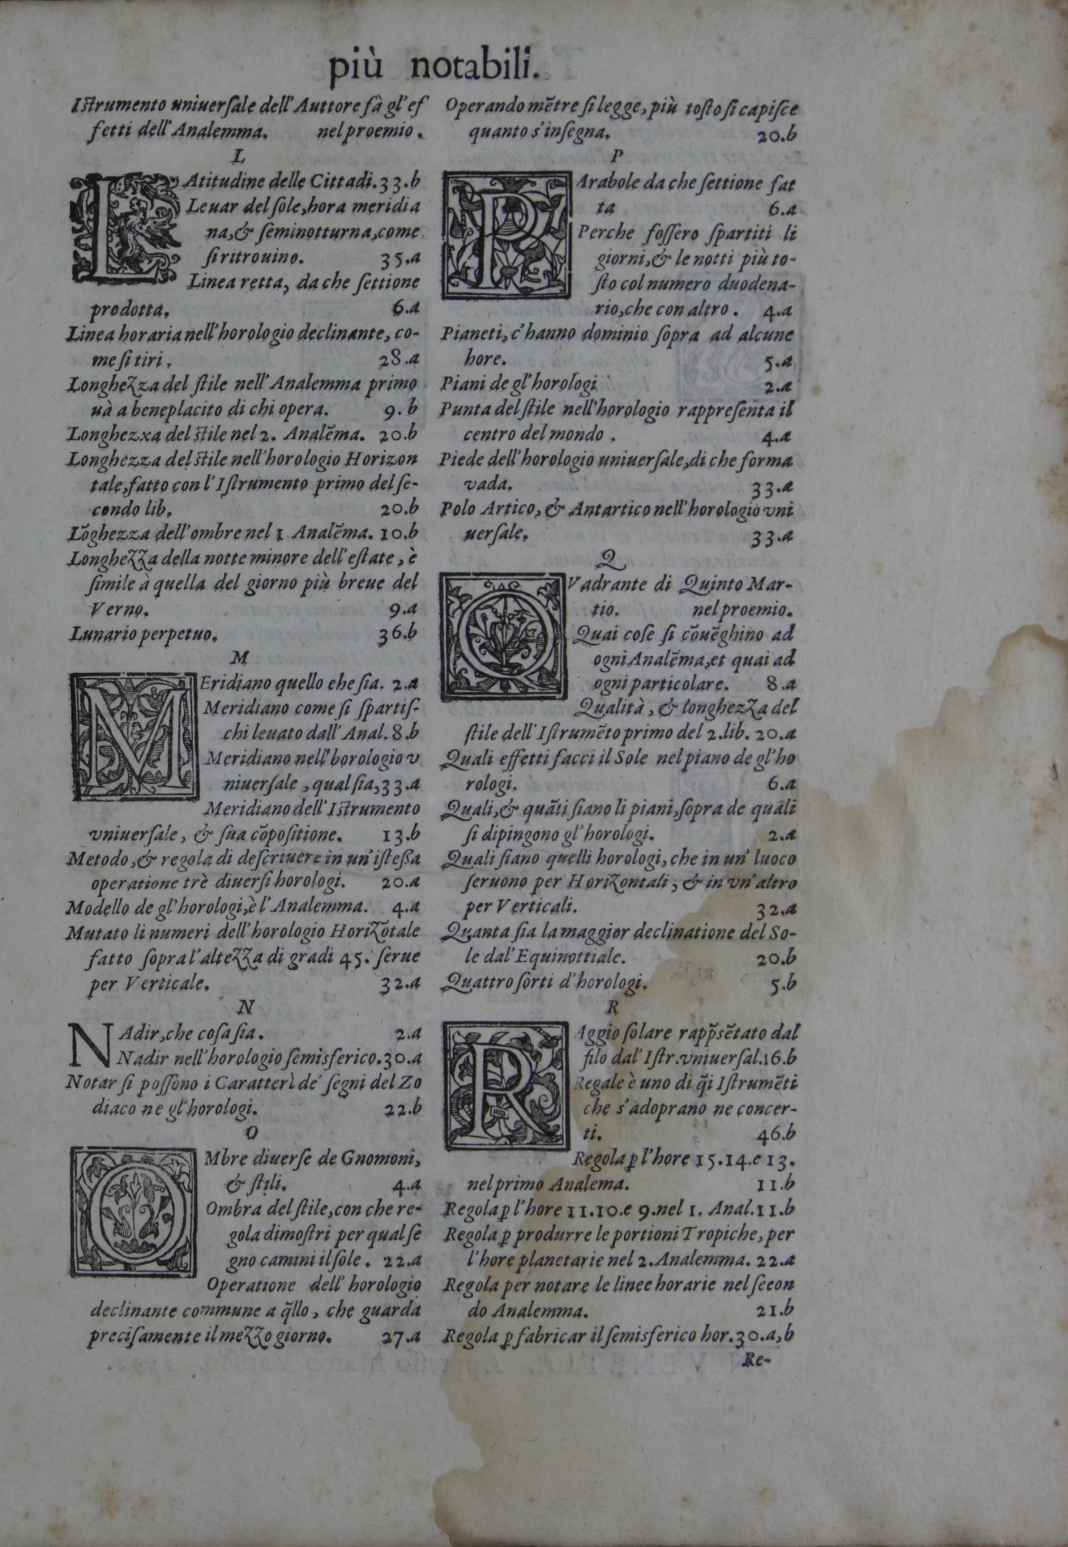 più notabili.
Iſtrumento uniuerſale dell'Auttore fà gl'ef
fetti dell'Analemma. nel proemio.
L
LAtitudine delle Cittadi. 33.b
Leuar del ſole, hora meridia
na, & ſeminotturna, come
ſi ritrouino. 35.a
Linea retta, da che ſettione
prodotta. 6.a
Linea horaria nell'horologio declinante, co-
me ſi tiri. 28.a
Longhezza del ſtile nell'Analemma primo
uà a beneplacito di chi opera. 9.b
Longhezxa del ſtile nel 2. Analēma. 20.b
Longhezza del ſtile nell'horologio Horizon
tale, fatto con l'Iſtrumento primo del ſe-
condo lib. 20.b
Lōghezza dell'ombre nel 1 Analēma. 10.b
Longhezza della notte minore dell'eſtate, è
ſimile à quella del giorno più breue del
Verno. 9.a
Lunario perpetuo. 36.b
M
MEridiano quello ehe ſia. 2.a
Meridiano come ſi ſpartiſ-
chi leuato dall'Anal. 8.b
Meridiano nell'horologio v
niuerſale, qual ſia, 33.a
Meridiano dell'Iſtrumento
vniuerſale, & ſua cōpoſitione. 13.b
Metodo, & regola di deſcriuere in un'iſteſſa
operatione trè diuerſi horologi. 20.a
Modello de gl'horologi, è l'Analemma. 4.a
Mutato li numeri dell'horologio Horizōtale
fatto ſopra l'altezza di gradi 45. ſerue
per Verticale. 32.a
N
NAdir, che coſa ſia. 2.a
Nadir nell'horologio ſemisferico. 30.a
Notar ſi poſſono i Caratteri de' ſegni del Zo
diaco ne gl'horologi. 22.b
O
OMbre diuerſe de Gnomoni,
& ſtili. 4.a
Ombra del ſtile, con che re-
gola dimoſtri per qual ſe
gno camini il ſole. 22.a
Operatione dell'horologio
declinante commune a q̃llo, che guarda
preciſamente il mezzo giorno. 27.a
Operando mētre ſi legge, più toſto ſi capiſce
quanto s'inſegna. 20.b
P
PArabole da che ſettione fat
ta 6.a
Perche foſſero ſpartiti li
giorni, & le notti più to-
ſto col numero duodena-
rio, che con altro. 4.a
Pianeti, c'hanno dominio ſopra ad alcune
hore. 5.a
Piani de gl'horologi 2.a
Punta del ſtile nell'horologio rappreſenta il
centro del mondo. 4.a
Piede dell'horologio uniuerſale, di che forma
vada. 33.a
Polo Artico, & Antartico nell'horologio vni
uerſale. 33.a
Q
QVadrante di Quinto Mar-
tio. nel proemio.
Quai coſe ſi cōuēghino ad
ogni Analēma, et quai ad
ogni particolare. 8.a
Qualità, & longhezza del
ſtile dell'Iſtrumēto primo del 2. lib. 20.a
Quali effetti facci il Sole nel piano de gl'ho
rologi. 6.a
Quali, & quāti ſiano li piani, ſopra de quali
ſi dipingono gl'horologi. 2.a
Quali ſiano quelli horologi, che in un' luoco
ſeruono per Horizontali, & in vn'altro
per Verticali. 32.a
Quanta ſia la maggior declinatione del So-
le dal'Equinottiale. 20.b
Quattro ſorti d'horologi. 5.b
R
RAggio ſolare rapp̃ſētato dal
filo dal'Iſtr. vniuerſal. 16.b
Regale è uno di q̃i Iſtrumēti
che s'adoprano ne concer-
ti. 46.b
Regola ꝑ l'hore 15.14.e 13.
nel primo Analema. 11.b
Regola ꝑ l'hore 11.10.e 9. nel 1. Anal. 11.b
Regola ꝑ produrre le portioni Tropiche, per
l'hore planetarie nel 2. Analemma. 22.a
Regola per notare le linee horarie nel ſecon
do Analemma. 21.b
Regola ꝑ fabricar il ſemisferico hor. 30.a,b
Re-